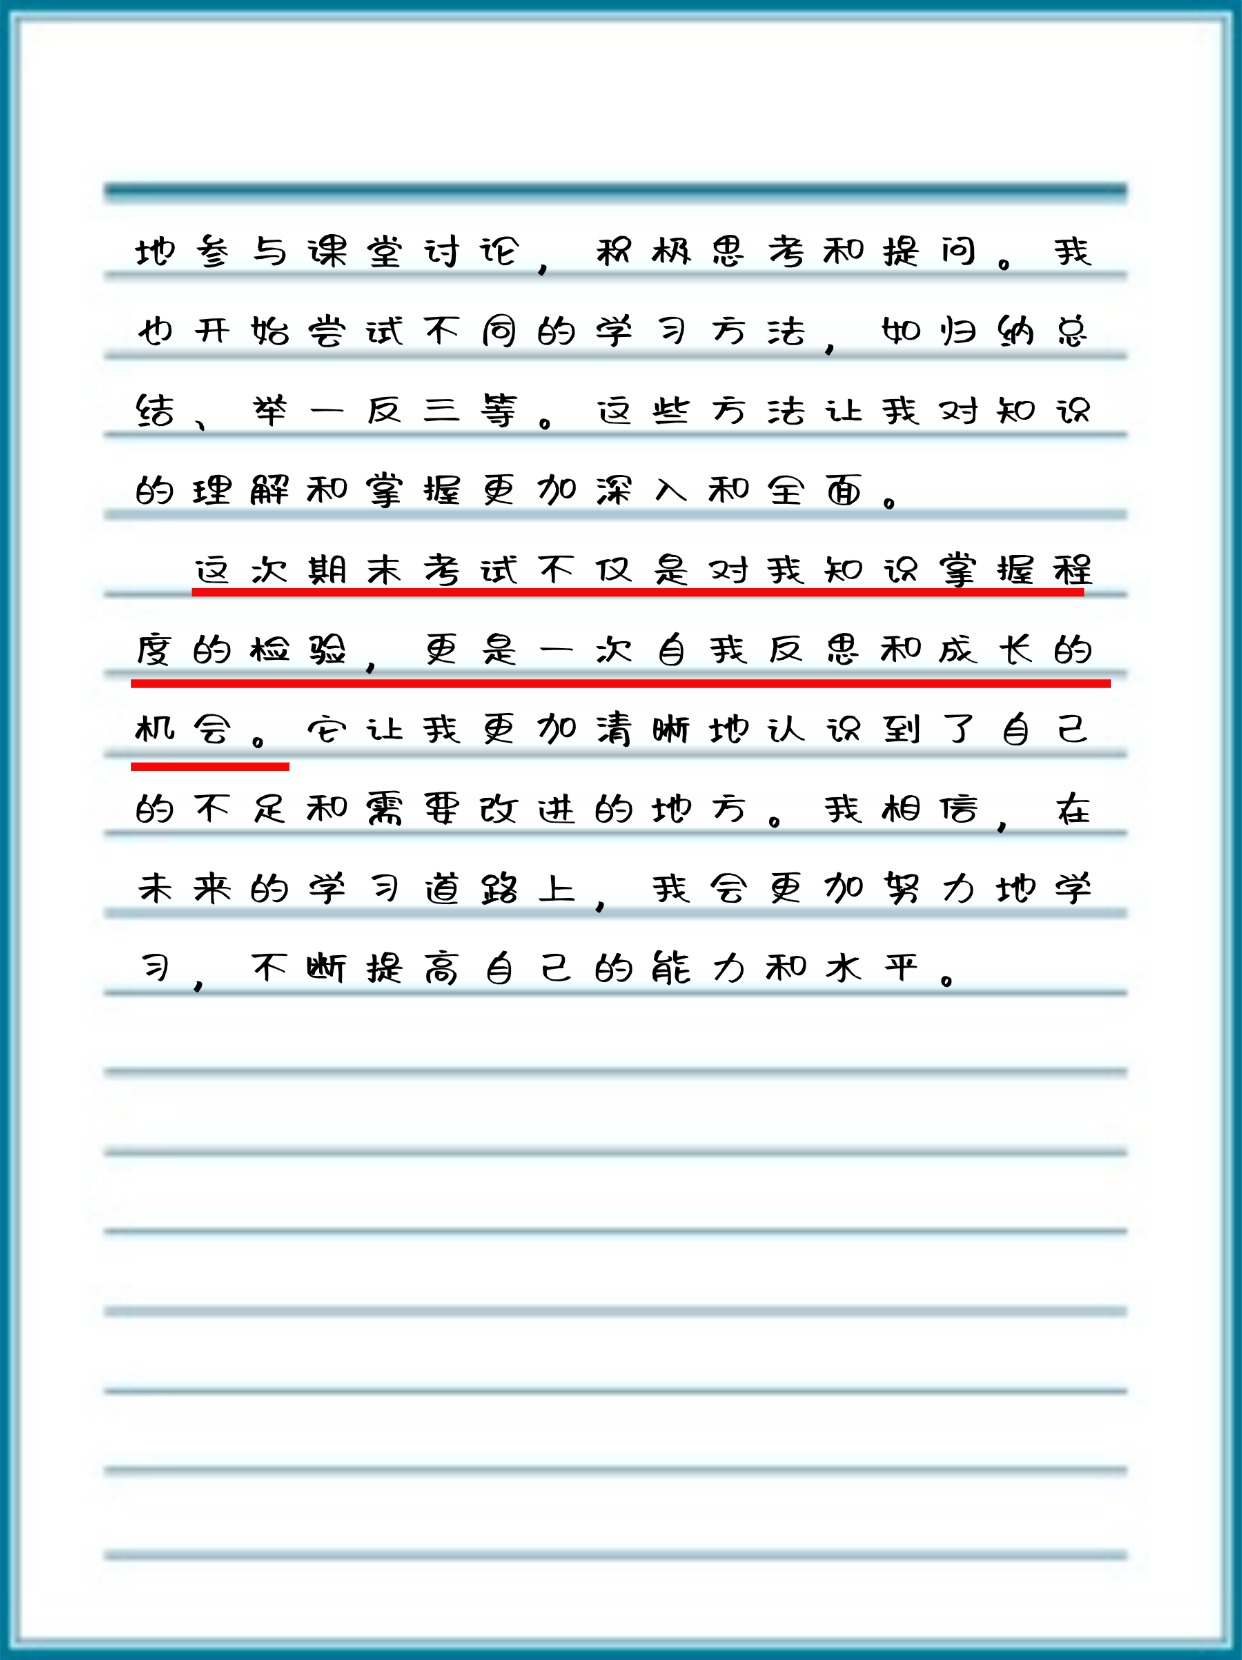 地参与课堂讨论，积极思考和提问。我
也开始尝试不同的学习方法，如归纳总
结、举一反三等。这些方法让我对知识
的理解和掌握更加深入和全面。
这次期末考试不仅是对我知识掌握程
度的检验，更是一次自我反思和成长的
机会。它让我更加清晰地认识到了自己
的不足和需要改进的地方。我相信，在
未来的学习道路上，我会更加努力地学
习，不断提高自己的能力和水平。